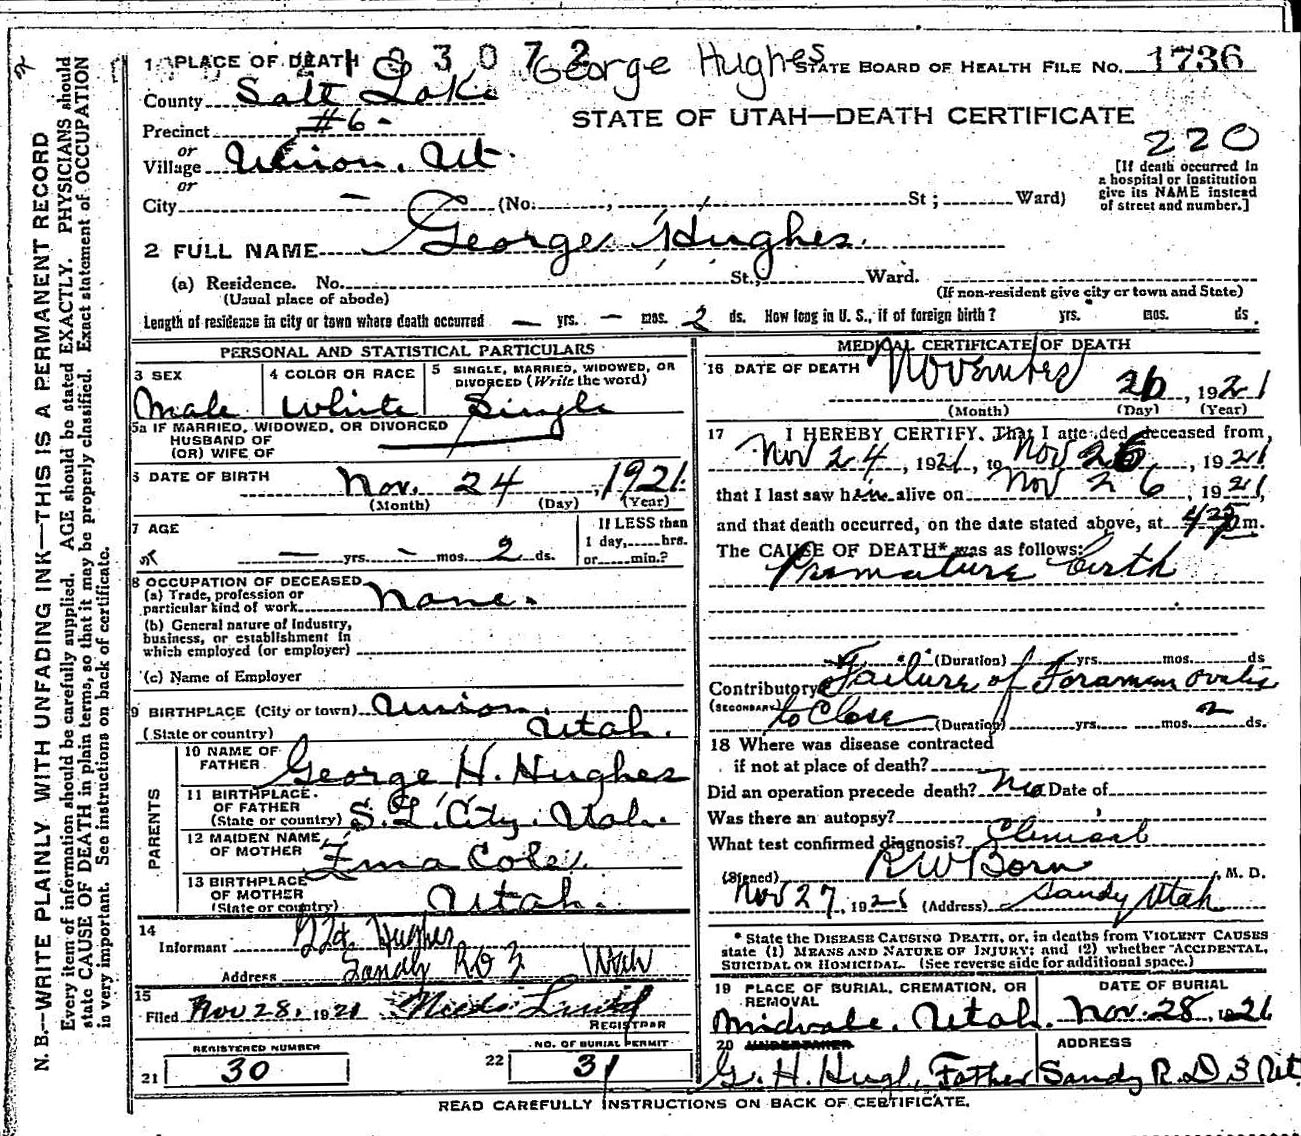 N. B.—WRITE PLAINLY WITH UNFADING INK—THIS IS A PERMANENT RECORD
Every item of information should be carefully supplied. AGE should be stated EXACTLY. PHYSICIANS should
state CAUSE OF DEATH in plain terms, so that it may be properly classified. Exact statement of OCCUPATION
is very important. See instructions on back of certificate.
1 PLACE OF DEATH 3072 George Hughes STATE BOARD OF HEALTH FILE NO. 1736
County Salt Lake
STATE OF UTAH—DEATH CERTIFICATE
Precinct #6-
220
or
Village Union, Ut.
or
City — (No. St; Ward)
[If death occurred in
a hospital or institution
give its NAME instead
of street and number.]
2 FULL NAME George Hughes.
(a) Residence. No. St., Ward.
(Usual place of abode) (If non-resident give city or town and State)
Length of residence in city or town where death occurred — yrs. — mos. 2 ds. How long in U. S., if of foreign birth? yrs. mos. ds.
PERSONAL AND STATISTICAL PARTICULARS
3 SEX 4 COLOR OR RACE 5 SINGLE, MARRIED, WIDOWED, OR
DIVORCED (Write the word)
Male White Single
5a IF MARRIED, WIDOWED, OR DIVORCED
HUSBAND OF
(OR) WIFE OF
6 DATE OF BIRTH Nov. 24, 1921.
(Month) (Day) (Year)
7 AGE If LESS than
1 day,......hrs.
— yrs. — mos. 2 ds. or......min.?
8 OCCUPATION OF DECEASED
(a) Trade, profession or
particular kind of work None.
(b) General nature of Industry,
business, or establishment in
which employed (or employer)
(c) Name of Employer
9 BIRTHPLACE (City or town) Union.
(State or country) Utah.
PARENTS
10 NAME OF
FATHER George H. Hughes
11 BIRTHPLACE
OF FATHER
(State or country) S. L. City. Utah.
12 MAIDEN NAME
OF MOTHER Ema Cole.
13 BIRTHPLACE
OF MOTHER
(State or country) Utah.
14
Informant Hughes
Address Sandy R D 3 Utah
15
Filed Nov 28, 1921
REGISTRAR
REGISTERED NUMBER NO. OF BURIAL PERMIT
21 30 22 31
MEDICAL CERTIFICATE OF DEATH
16 DATE OF DEATH November 26, 1921
(Month) (Day) (Year)
17 I HEREBY CERTIFY, That I attended deceased from
Nov 24, 1921, to Nov 26, 1921
that I last saw him alive on Nov 26, 1921,
and that death occurred, on the date stated above, at 425 pm.
The CAUSE OF DEATH* was as follows:
Premature birth
(Duration) yrs. mos. ds
Contributory Failure of Foramen ovalis
(SECONDARY) to Close (Duration) yrs. mos. 2 ds.
18 Where was disease contracted
if not at place of death?
Did an operation precede death? No Date of
Was there an autopsy?
What test confirmed diagnosis? Clinical
(Signed) R W Born, M. D.
Nov 27, 1921 (Address) Sandy Utah
* State the DISEASE CAUSING DEATH, or, in deaths from VIOLENT CAUSES
state (1) MEANS AND NATURE OF INJURY; and (2) whether ACCIDENTAL,
SUICIDAL OR HOMICIDAL. (See reverse side for additional space.)
19 PLACE OF BURIAL, CREMATION, OR
REMOVAL DATE OF BURIAL
Midvale, Utah. Nov. 28, 1921
20 UNDERTAKER ADDRESS
G. H. Hugh, Father Sandy R. D 3 Ut
READ CAREFULLY INSTRUCTIONS ON BACK OF CERTIFICATE.